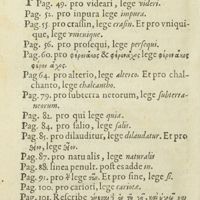 Pag. 49. pro videari, lege videri.
Pag. 52. pro inpura lege impura.
Pag. 55. pro crassin, lege crasin. Et pro vniqui-
que, lege vnicuique.
Pag. 56. pro prosequi, lege persequi.
Pag. 60. pro lege
Pag. 64. pro alterio, lege altero. Et pro chal-
chanto, lege chalcantho.
Pag. 79. pro subterra netorum, lege subterra-
neorum.
Pag. 82. pro qui lege quia.
Pag. 84. pro salio, lege salis.
Pag. 85. pro dilauditur, lege dilaudatur. Et pro
lege
Pag. 87. pro natualis, lege naturalis
Pag. 88. linea penult. post easdem.
Pag. 91. pro lege Et pro sine, lege
Pag. 100. pro carioti, lege cariota.
Pag. 101. Rescribe